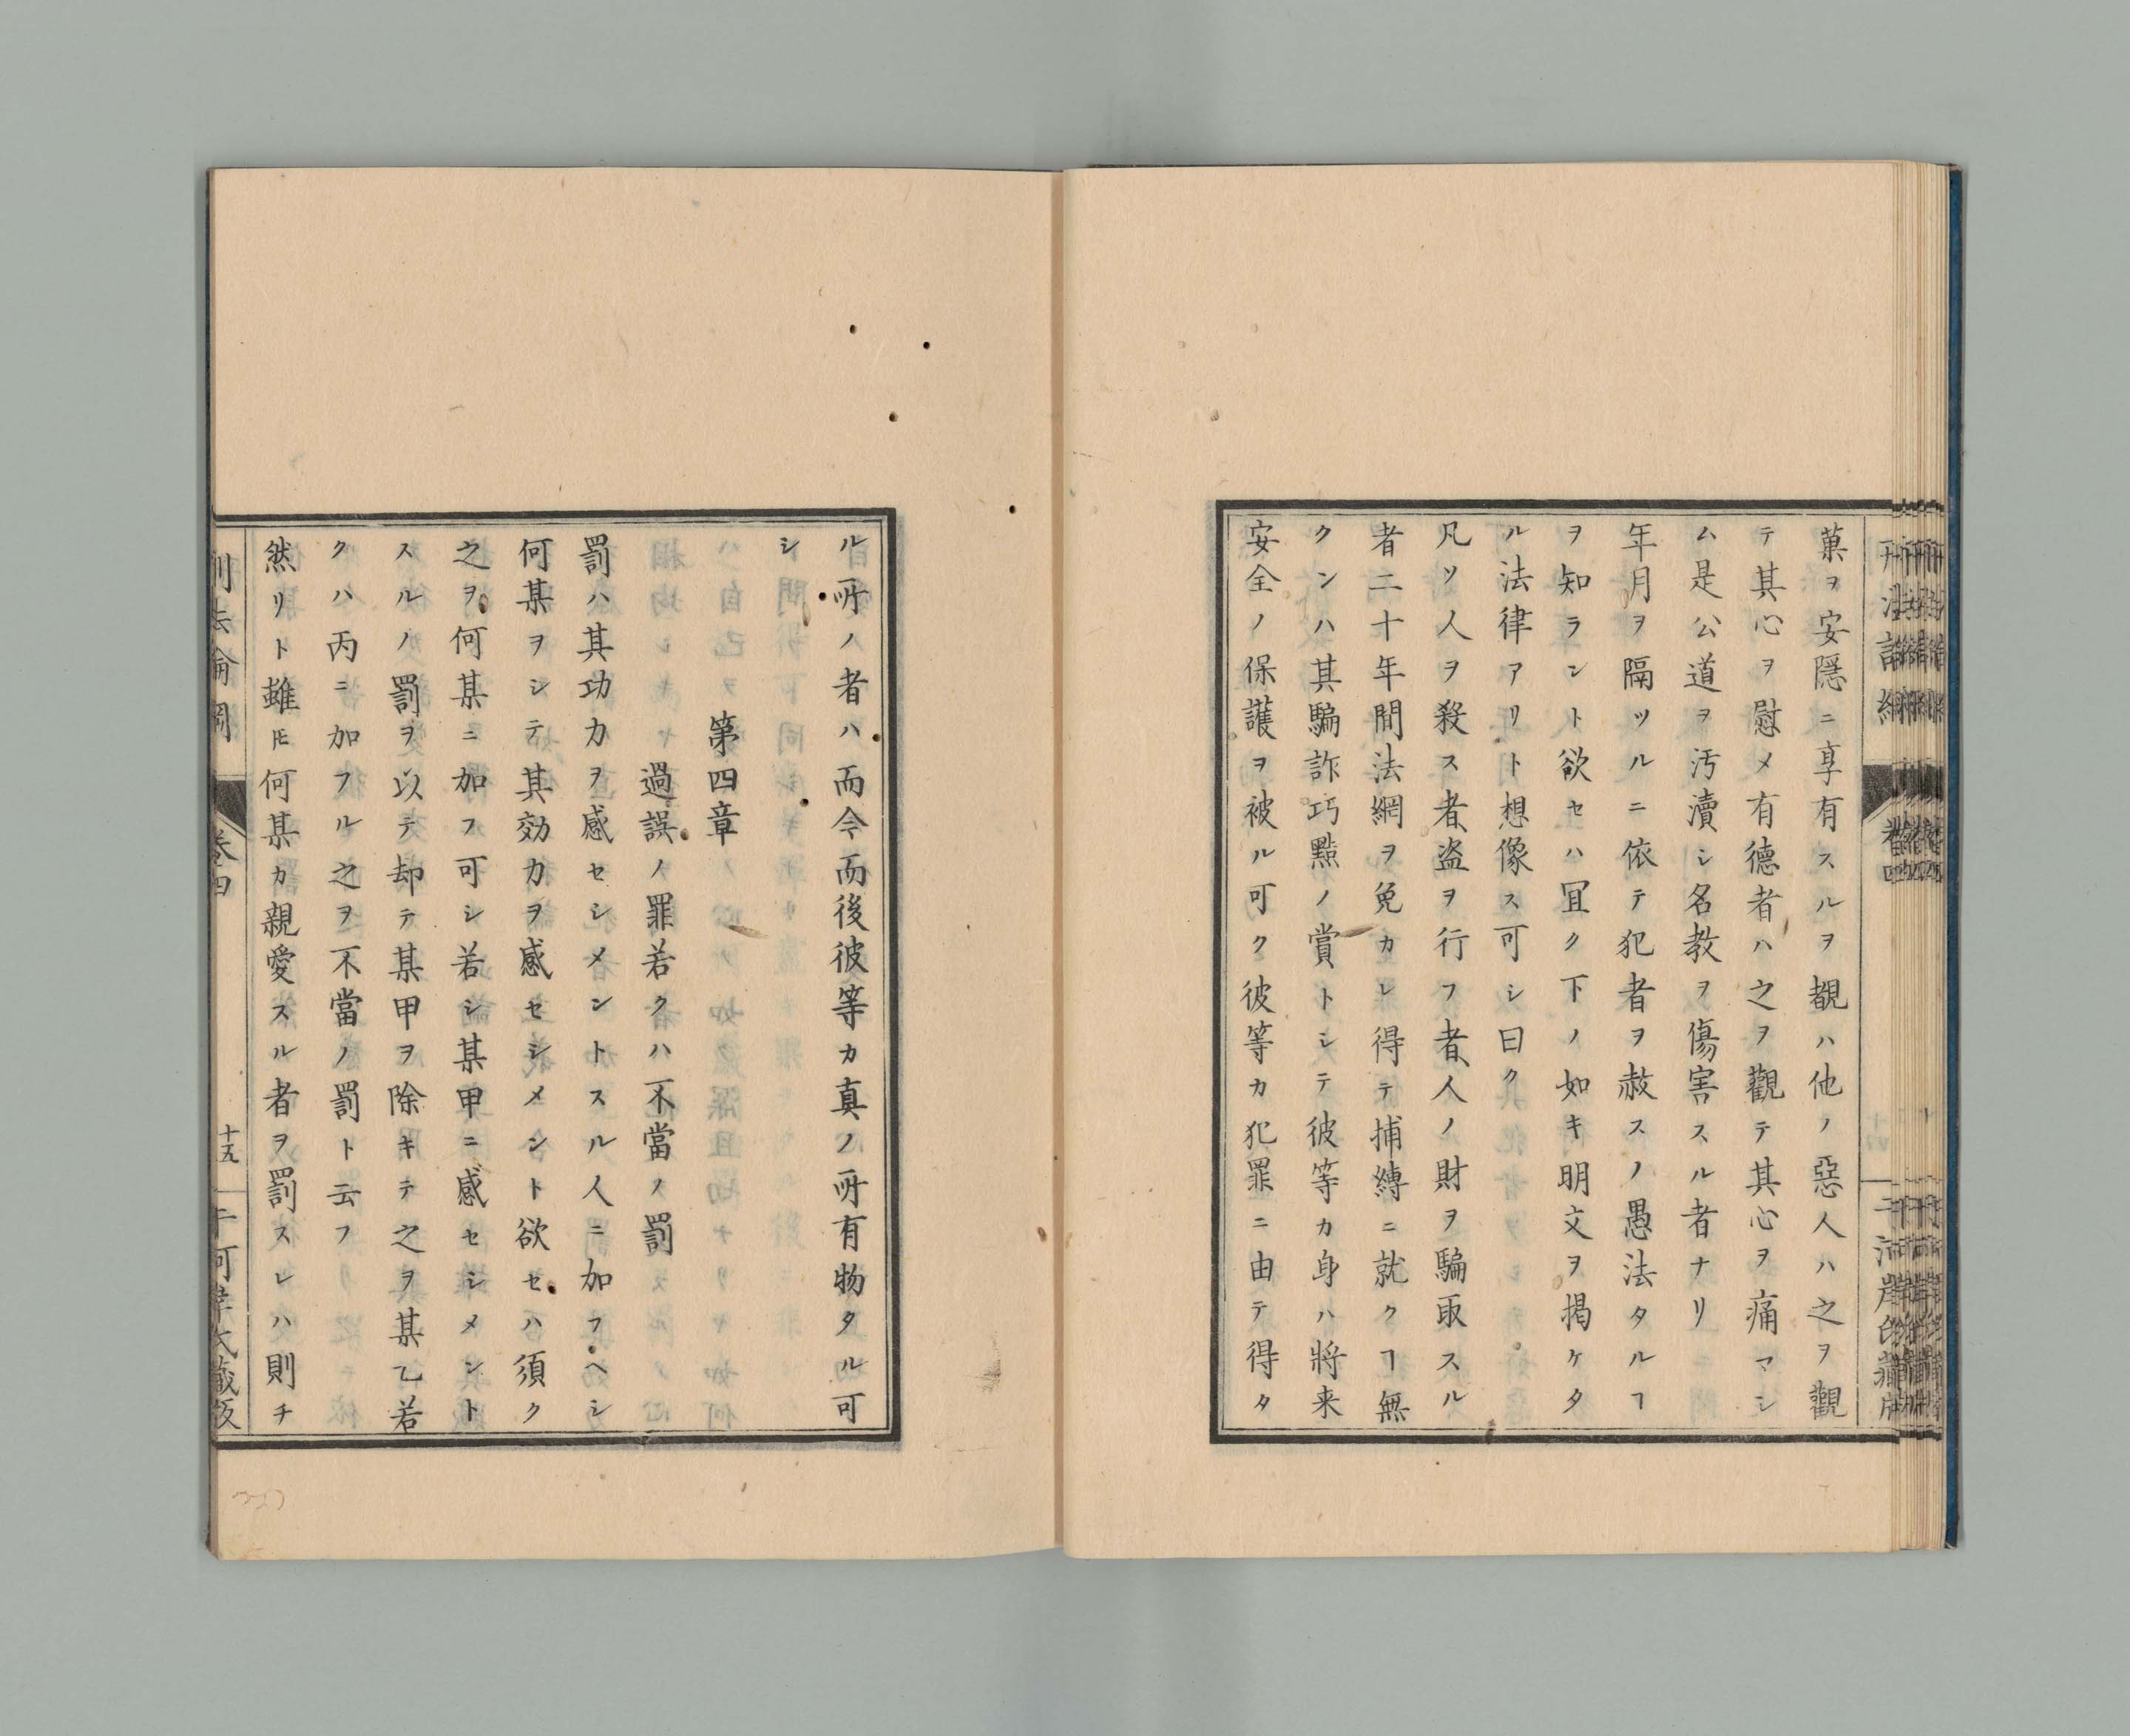 菓ヲ安隱ニ享有スルヲ覩ハ他ノ惡人ハ之ヲ觀
テ其心ヲ慰メ有德者ハ之ヲ觀テ其心ヲ痛マシ
ム是公道ヲ汚瀆シ名教ヲ傷害スル者ナリ
年月ヲ隔ツルニ依テ犯者ヲ赦スノ愚法タルヿ
ヲ知ラント欲セハ冝ク下ノ如キ明文ヲ掲ケタ
ル法律アリト想像ス可シ曰ク
凡ソ人ヲ殺ス者、盗ヲ行フ者、人ノ財ヲ騙取スル
者二十年間法網ヲ免カレ得テ捕縛ニ就クヿ無
クンハ其騙詐巧黠ノ賞トシテ彼等カ身ハ將来
安全ノ保護ヲ被ル可ク彼等カ犯罪ニ由テ得タ
ル所ノ者ハ而今而後彼等カ真ノ所有物タル可
シ
第四章
過誤ノ罪若クハ不當ノ罰
罰ハ其功力ヲ感セシメントスル人ニ加フヘシ
何某ヲシテ其効力ヲ感セシメント欲セハ須ク
之ヲ何某ニ加フ可シ若シ某甲ニ感セシメント
スルノ罰ヲ以テ却テ某甲ヲ除キテ之ヲ某乙若
クハ丙ニ加フル之ヲ不當ノ罰ト云フ
然リト雖𪜈何某カ親愛スル者ヲ罰スレハ則チ
刑法論綱 巻四 十五